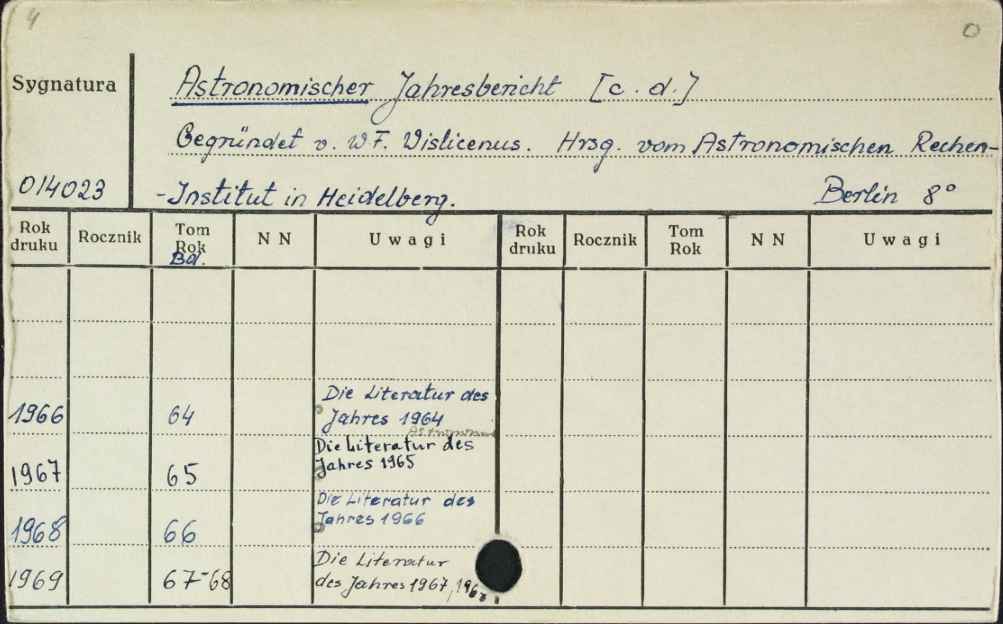 4
0
Sygnatura
Astronomischer Jahresbericht [c. d.]
Begründet v. W.F. Wislicenus. Hrsg. vom Astronomischen Rechen-
014023
-Institut in Heidelberg.
Berlin 8°
Rok druku Rocznik Tom Rok Bd. N N Uwagi Rok druku Rocznik Tom Rok N N Uwagi
1966 64 Die Literatur des
Jahres 1964
1967 65 Die Literatur des
Jahres 1965
1968 66 Die Literatur des
Jahres 1966
1969 67-68 Die Literatur
des Jahres 1967,